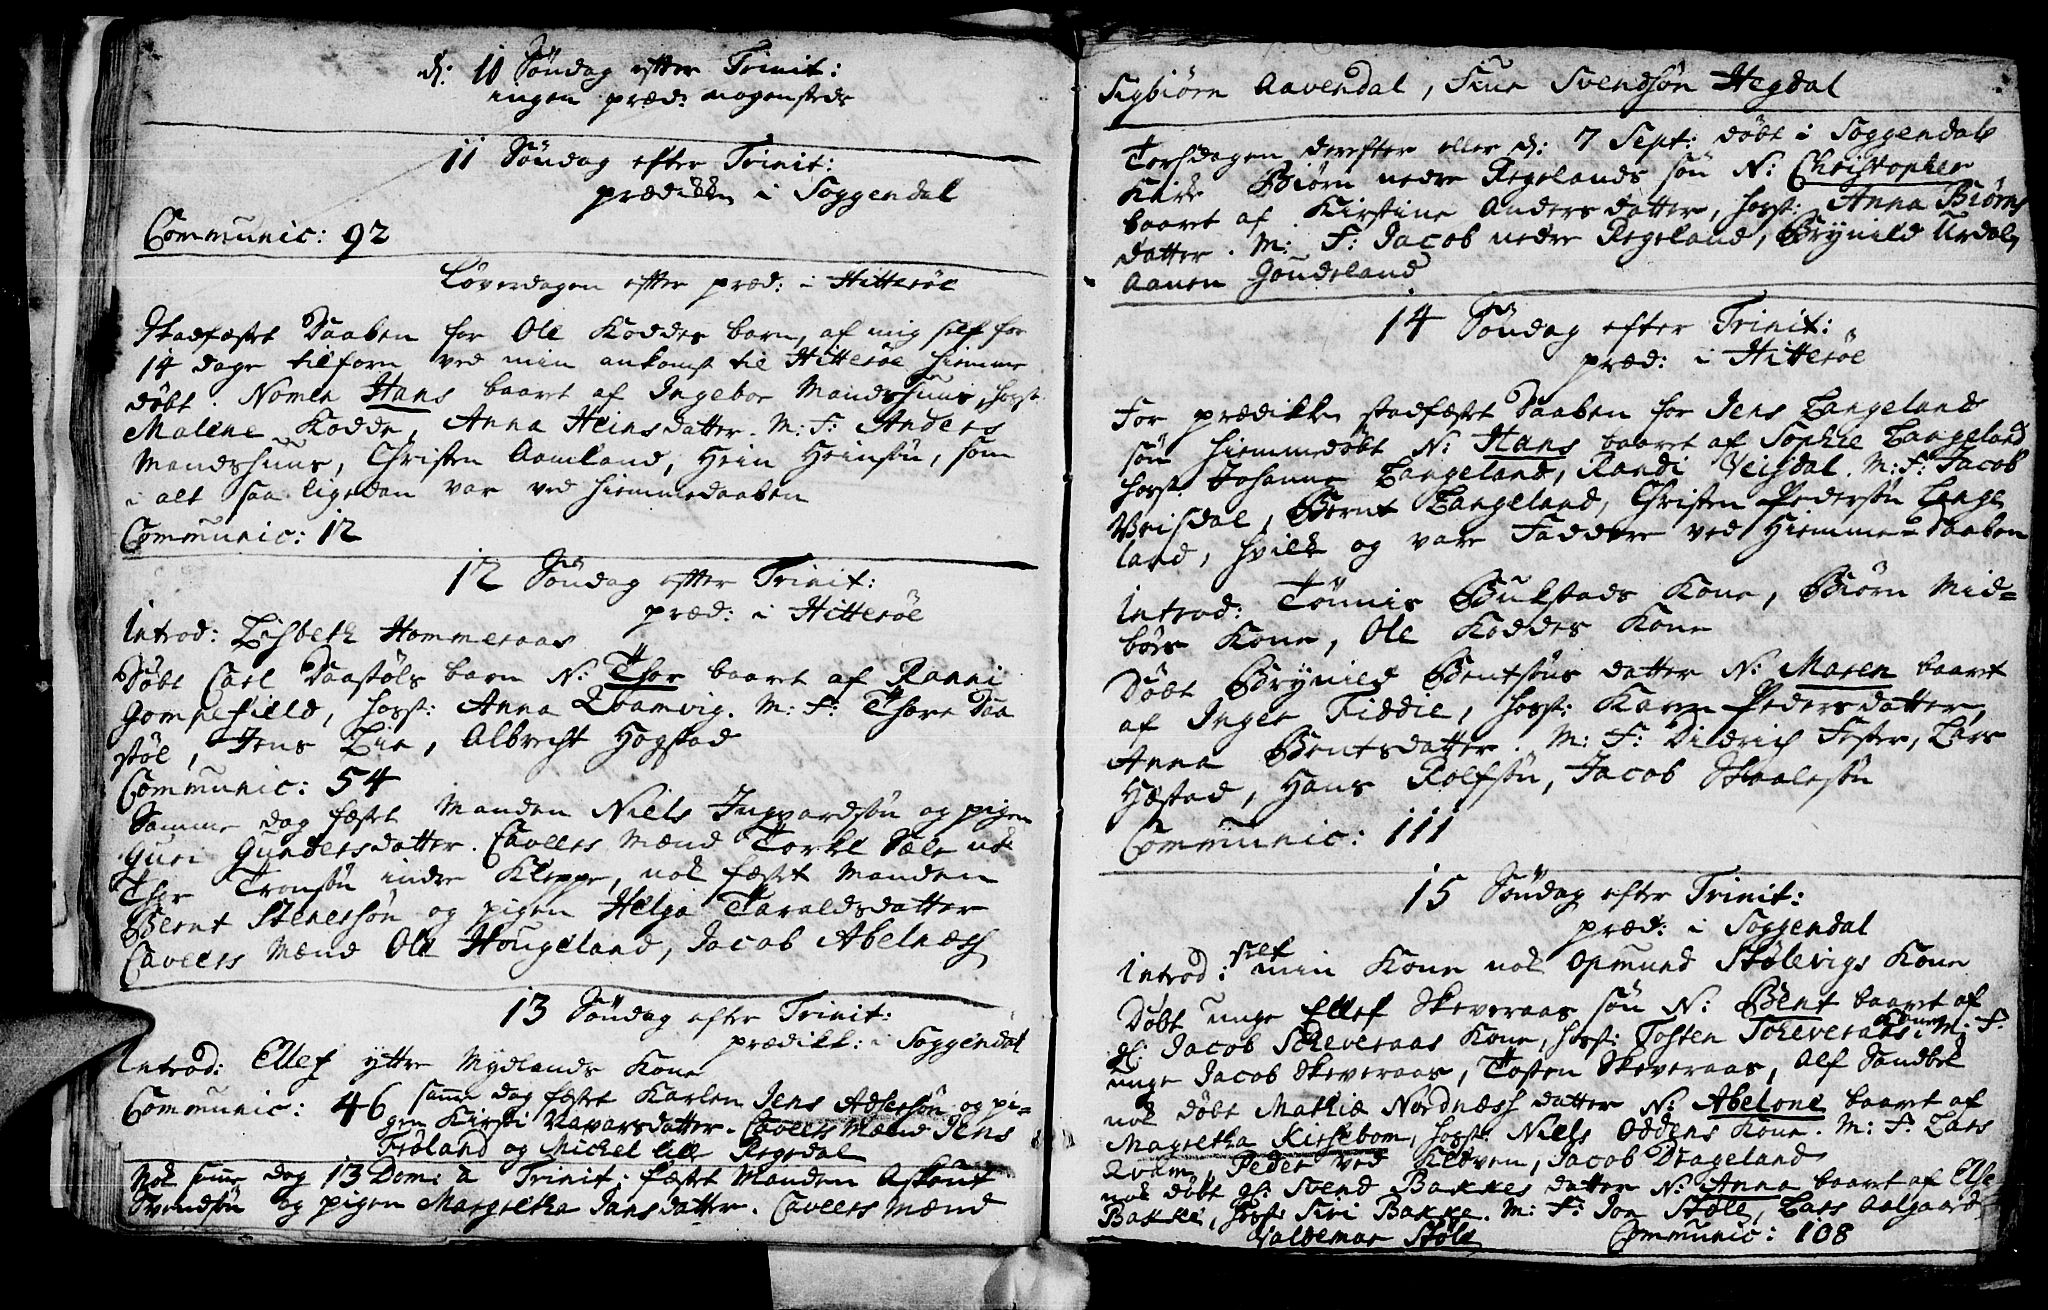 d: 10 Søndag efter Trinit:
ingen præd: nogensteds
11 Søndag efter Trinit:
prædikken i Soggendal
Communic: 92
Løverdagen efter præd: i Hitterøe
Stadfæstet Daaben for Ole Koddes barn, af mig self for
14 dage tilforn ved min ankomst til Hitterøe hiemme
døbt. Nomen Hans baaret af Ingebor Mandshuus, horst:
Malene Kodde, Anna Heinsdatter. M: F: Anders
Mandshuus, Christen Aamland, Hein Heinsøn, som
i alt saa ligedan var ved hiemmedaaben
Communic: 12
12 Søndag efter Trinit:
præd: i Hitterøe
Introd: Lisbeth Hammeraas
Døbt Carl Daastøls barn N: Thor baaret af Ranni
Gompefield, horst: Anna Qvamvig. M: F: Thore Daa
støl, Jens Lie, Albrecht Hogstad
Communic: 54
Samme dag fæstet Manden Niels Ingvardsøn og pigen
Guri Gundersdatter. Caveers Mænd Torkel Sæle nok
Thor Tronsøn indre Kleppe, nok fæstet Manden
Bernt Stenersøn og pigen Helga Taraldsdatter
Caveers Mænd Ole Hougeland, Jacob Abelnæss
13 Søndag efter Trinit:
prædikk: i Soggendal
Introd: Ellef yttre Mydlands Kone
Communic: 46 samme dag fæstet Karlen Jens Adsersøn og pi-
gen Kirsti Navarsdatter. Caveers Mænd Jens
Frøland og Michel lille Regedal
Nok samme dag 13 Dom: a Trinit: fæstet Manden Askout
Svendsøn og pigen Margretha Jansdatter. Caveers Mænd
Sigbiørn Aavendal, Sive Svendsøn Hegdal
Torsdagen derefter eller d: 7 Sept: døbt i Soggendals
Kirke Biørn nedre Regelands søn N: Christopher
baaret af Kirstine Andersdatter, horst: Anna Biørns
datter. M: F: Jacob nedre Regeland, Brynild Urdal,
Aanen Goudeland
14 Søndag efter Trinit:
præd: i Hitterøe
For prædikken stadfæstet Daaben for Jens Langelands
søn hiemmedøbt N: Hans baaret af Sophie Langeland
horst: Johanne Langeland, Randi Veisdal. M: F: Jacob
Veisdal, Bernt Langeland, Christen Pedersøn Lange
land, hvilke og vare Faddere ved Hiemme-Daaben
Introd: Tønnis Bukstads Kone, Biørn Mid-
børs Kone, Ole Koddes Kone
Døbt Brynild Bentsøns datter N: Maren baaret
af Inger Fiddie, horst: Karen Pedersdatter,
Anna Bentsdatter. M: F: Didrich Fester, Lars
Hæstad, Hans Rolfsøn, Jacob Staalesøn
Communic: 111
15 Søndag efter Trinit:
præd: i Soggendal
Introd: self min Kone nok Opmund Stølevigs Kone
Døbt unge Ellef Skeveraas søn N: Bent baaret af
gl: Jacob Skeveraas Kone, horst: Tosten Skeveraas Kone. M: F:
unge Jacob Skeveraas, Tosten Skeveraas, Alf Sandbek
nok døbt Mathiæ Nordnæss datter N: Abelone baaret af
Magretha Kirkebom, horst: Niels Oddens Kone. M: F: Lars
Qvam, Peder ved Kløven, Jacob Drageland
nok døbt gl: Svend Bakkes datter N: Anna baaret af Else
Bakke, horst: Siri Bakke. M: F: Jon Støle, Lars Aalgaard
Valdemar Støle Communic: 108